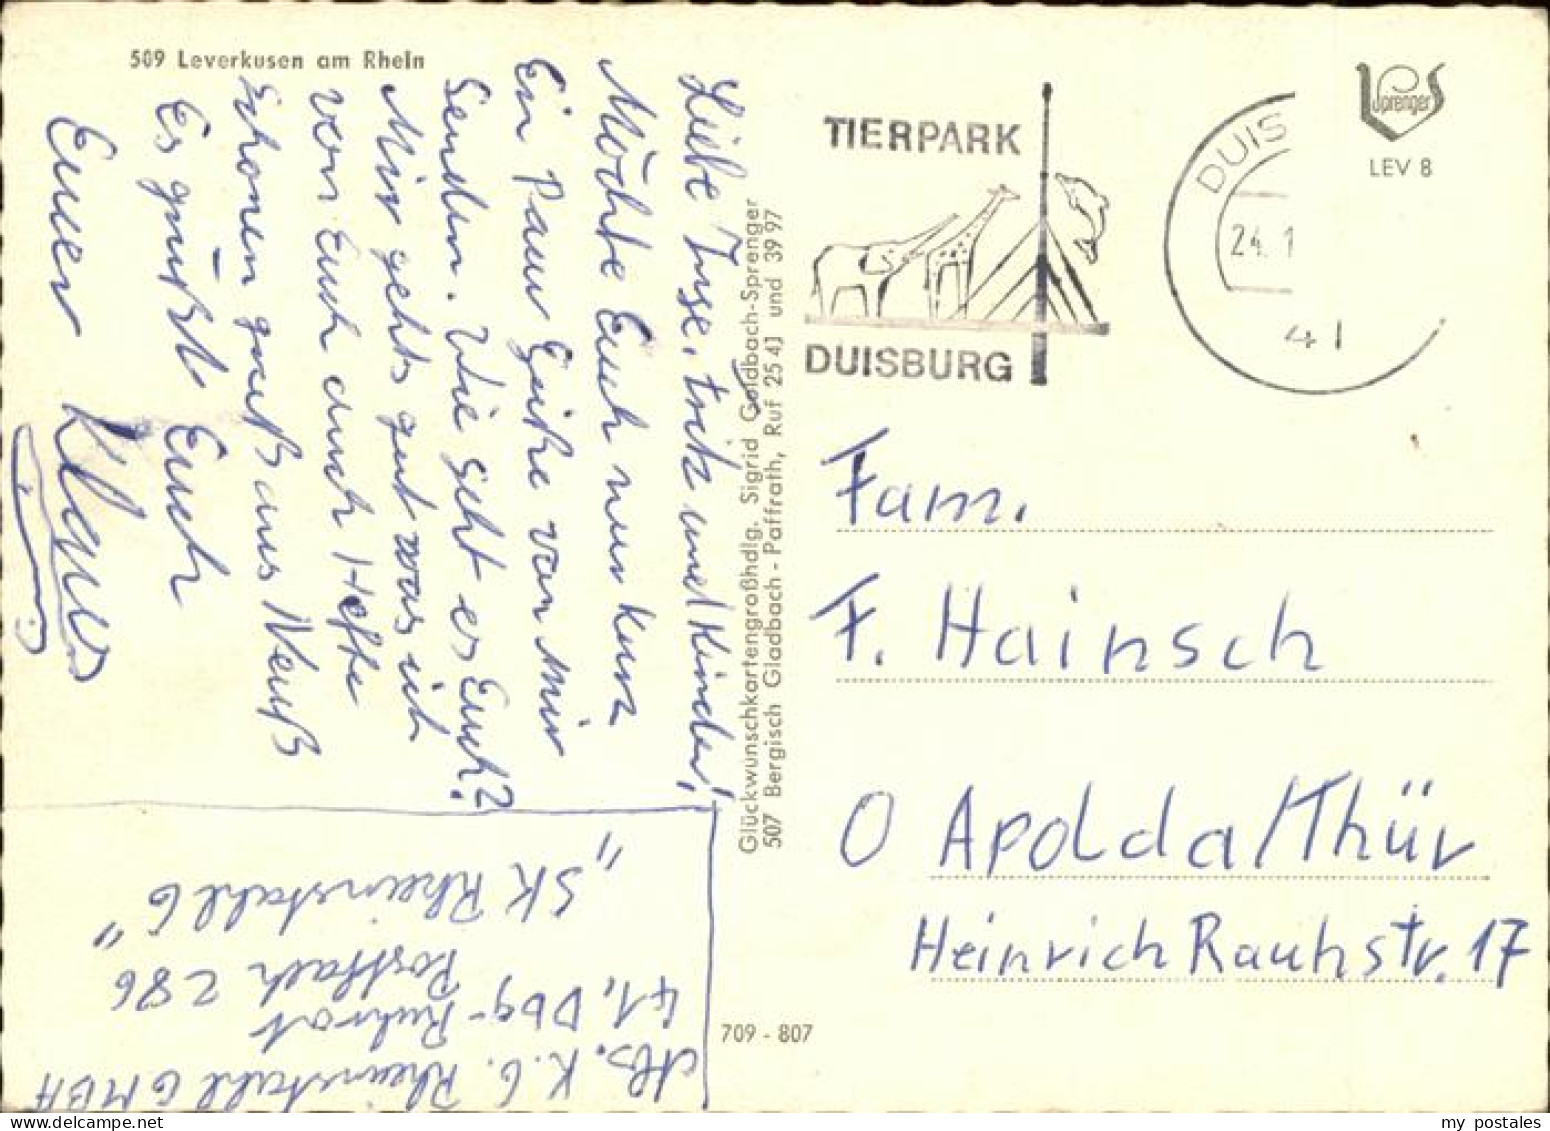 509 Leverkusen am Rhein
Liebe Inge, Fritz und Kinder!
Möchte Euch nur kurz
Ein Paar Grüße von mir
Senden. Wie geht es Euch?
Mir gehts gut was ich
von Euch auch Hoffe
Schonen gruß aus Neuß
Es grüßt Euch
Euer Klaus
Abs. K. G. Rheinstahl GMBH
41, Dbg-Ruhrort
Postfach 286
"SK Rheinstahl 6"
Glückwunschkartengroßhdlg. Sigrid Goldbach-Sprenger
507 Bergisch Gladbach - Paffrath, Ruf 25 41 und 39 97
709 - 807
TIERPARK
DUISBURG
DUIS
24. 1
41
Sprenger
LEV 8
Fam.
F. Hainsch
O Apolda/Thür
Heinrich Rauhstr. 17
my postales